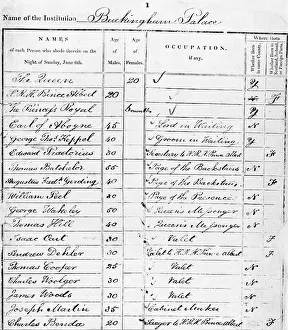 1
Name of the Institution, Buckingham Palace
NAMES of each Person who abode therein on the Night of Sunday, June 6th.
Age of Males.
Age of Females.
OCCUPATION, if any.
Where Born
Whether Born in same County.
The Queen 20 Y
H.R.H. Prince Albert 20 F
The Princess Royal months Y
Earl of Aboyne 45 Lord in Waiting N
George Thos Keppel 40 Groom in Waiting Y
Edward Praetorius 30 Secretary to H.R.H. Prince Albert F
Thomas Batchelor 55 Page of the Backstairs N
Augustus Fredk Gerding 40 Page of the Backstairs F
William Seel 30 Page of the Presence N
George Wakeley 50 Queens Messenger N
Thomas Hill 40 Queens Messenger N
Isaac Cart 30 Valet F
Andrew Dehler 30 Valet to H.R.H. Prince Albert F
Thomas Cooper 25 Valet N
Charles Woolger 30 Valet N
James Woods 30 Valet N
Joseph Martin 35 Cabinet Maker N
Charles Benda 20 Jaeger to H.R.H. Prince Albert F